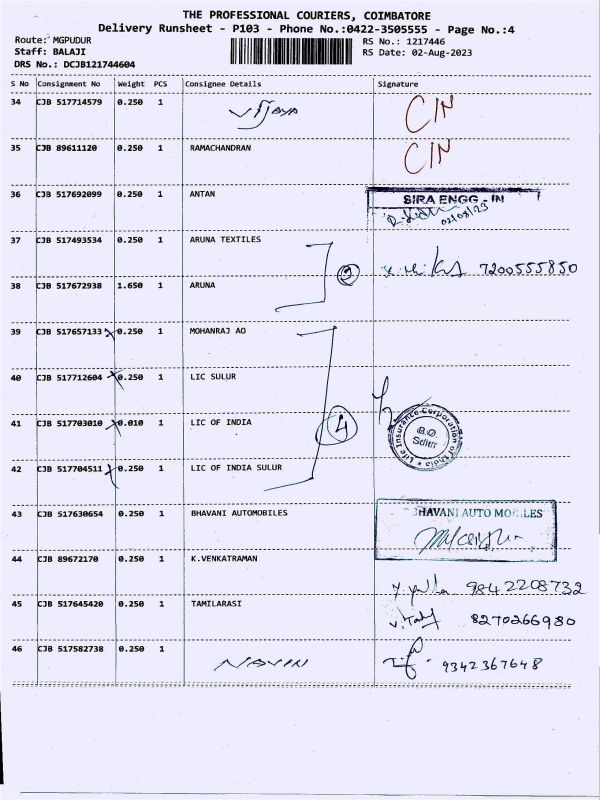 THE PROFESSIONAL COURIERS, COIMBATORE
Delivery Runsheet - P103 - Phone No.:0422-3505555 - Page No.:4
Route: MGPUDUR
RS No.: 1217446
Staff: BALAJI
RS Date: 02-Aug-2023
DRS No.: DCJB121744604
S No Consignment No Weight PCS Consignee Details Signature
34 CJB 517714579 0.250 1 Vijaya C/N
35 CJB 89611120 0.250 1 RAMACHANDRAN C/N
36 CJB 517692099 0.250 1 ANTAN SIRA ENGG - IN
02/08/23
37 CJB 517493534 0.250 1 ARUNA TEXTILES
2 7200555850
38 CJB 517672938 1.650 1 ARUNA
39 CJB 517657133 0.250 1 MOHANRAJ AO
40 CJB 517712604 0.250 1 LIC SULUR
41 CJB 517703010 0.010 1 LIC OF INDIA 4 Life Insurance Corporation of India B.O. Sulur
42 CJB 517704511 0.250 1 LIC OF INDIA SULUR
43 CJB 517630654 0.250 1 BHAVANI AUTOMOBILES BHAVANI AUTO MOBILES
44 CJB 89672170 0.250 1 K.VENKATRAMAN 9842208732
45 CJB 517645420 0.250 1 TAMILARASI 8270266980
46 CJB 517582738 0.250 1 NAVIN 9342367648